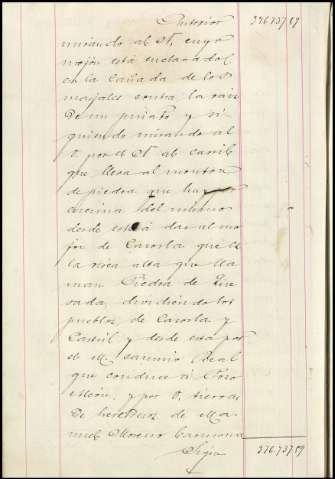 Anterior 376.737 19
mirando al N, cuyo
mojón está enclavado
en la Cañada de los
majales contra la raiz
de un pinato y si-
guiendo mirando al
O por el N al carril
que lleva al monton
de piedra que hay
encima del mismo
desde está dar al mo-
jon de Cazorla que
la roca alta que lla-
man Piedra de
dividiendo los
pueblos de Cazorla y
Castril y desde esta por
el M. camino Real
que conduce á Pozo
Alcon, y por O. tierras
de herederos de Ma-
nuel Moreno Carmona
Sigue 376.737 19